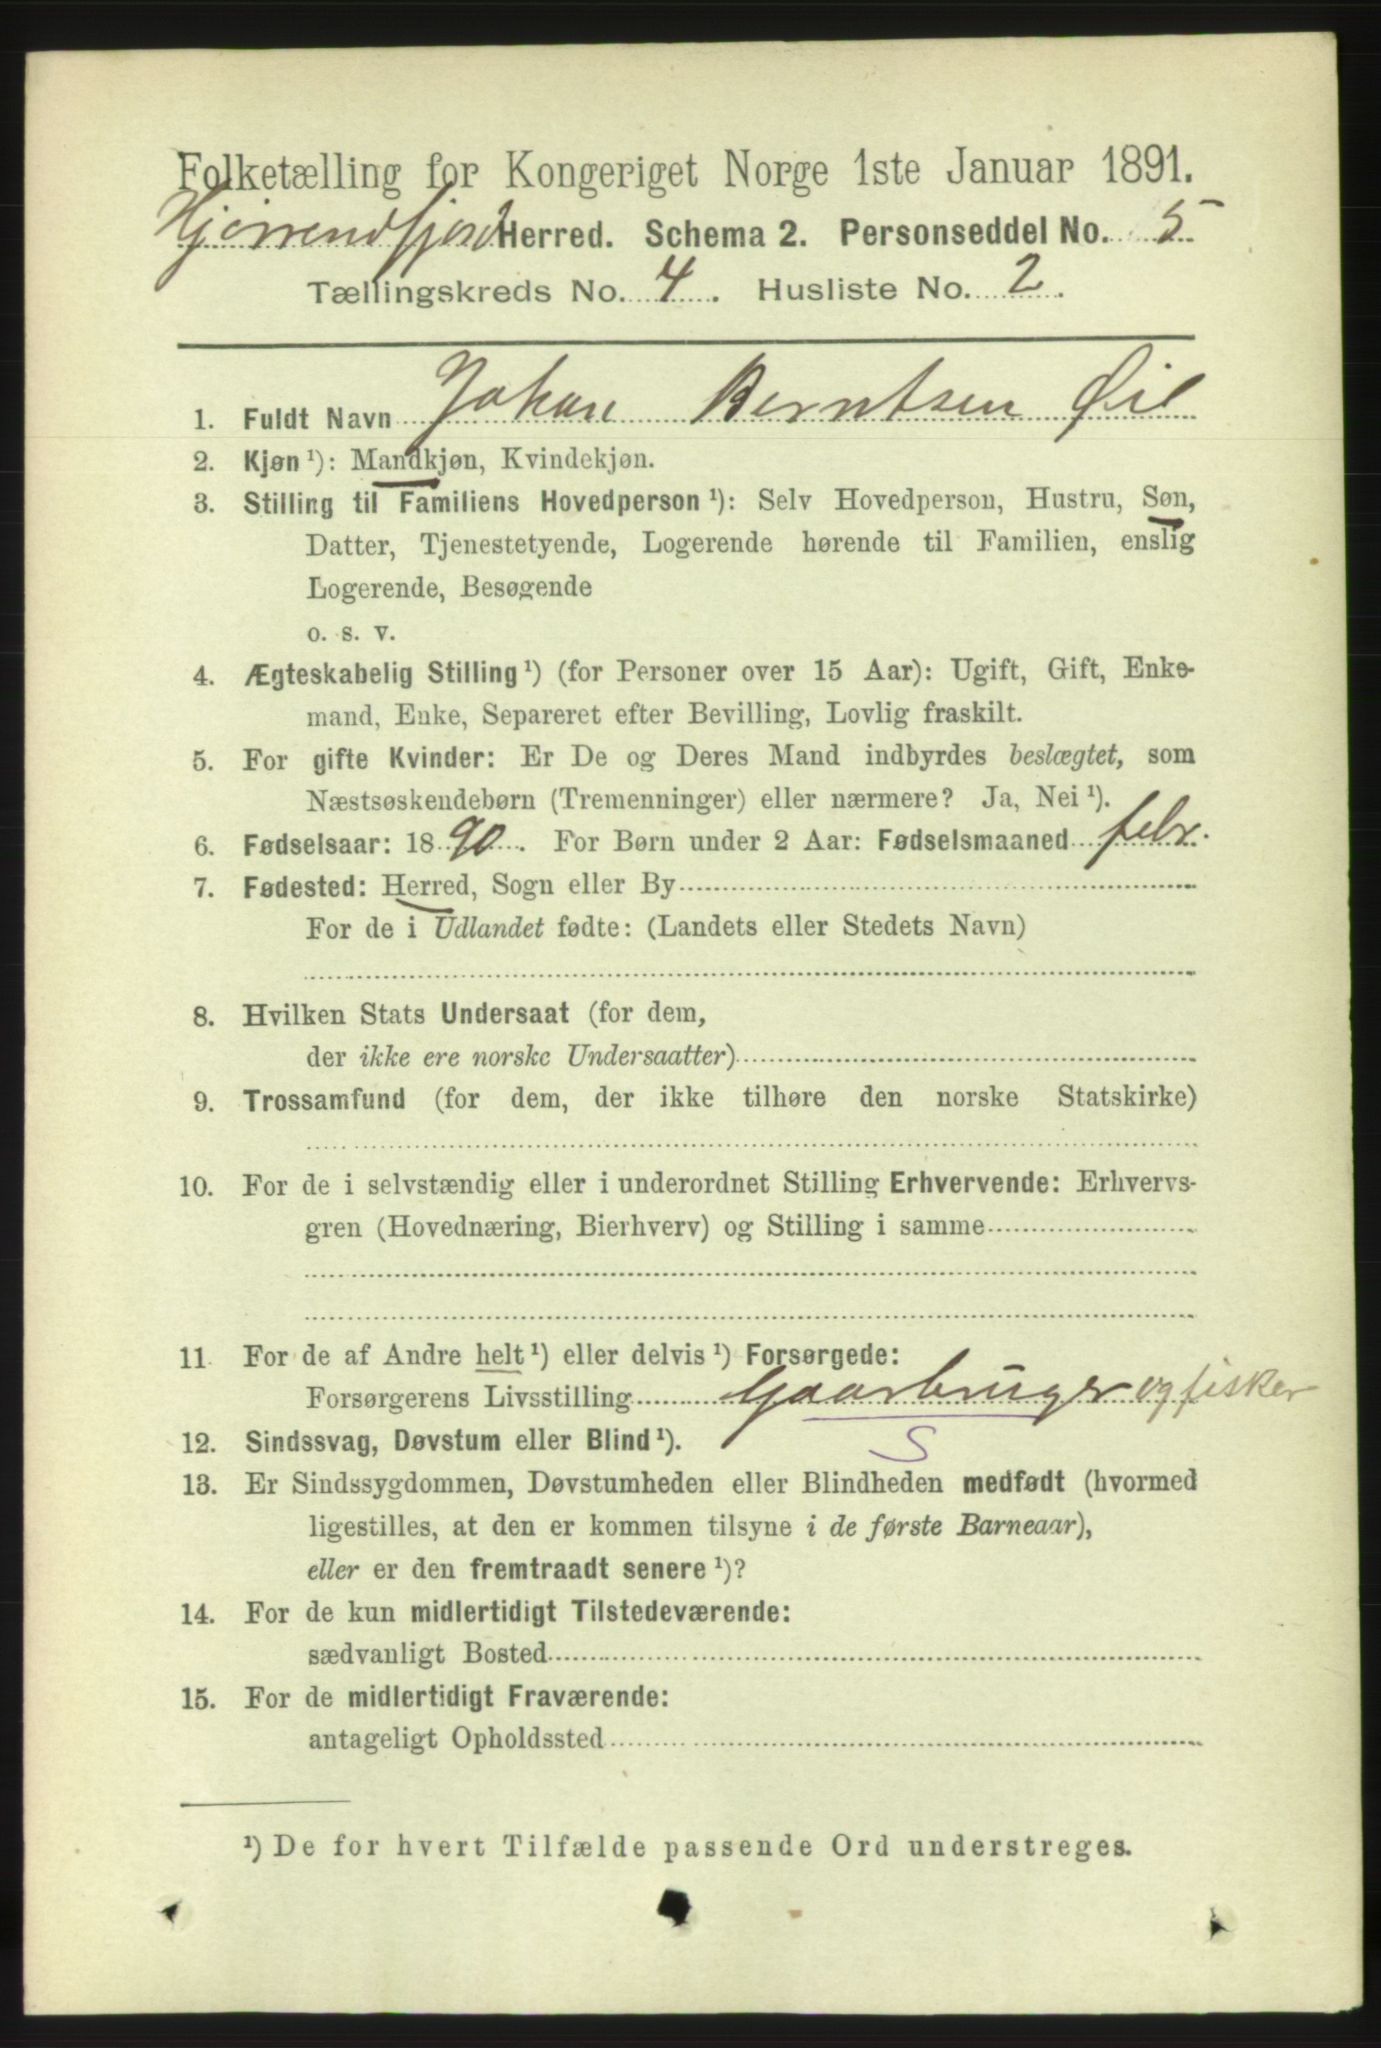 Folketælling for Kongeriget Norge 1ste Januar 1891.
Hjørrendfjord Herred. Schema 2. Personseddel No. 5
Tællingskreds No. 4. Husliste No. 2.
1. Fuldt Navn Johan Berntsen Øie
2. Kjøn ¹): Mandkjøn, Kvindekjøn.
3. Stilling til Familiens Hovedperson ¹): Selv Hovedperson, Hustru, Søn,
Datter, Tjenestetyende, Logerende hørende til Familien, enslig
Logerende, Besøgende
o. s. v.
4. Ægteskabelig Stilling ¹) (for Personer over 15 Aar): Ugift, Gift, Enke-
mand, Enke, Separeret efter Bevilling, Lovlig fraskilt.
5. For gifte Kvinder: Er De og Deres Mand indbyrdes beslægtet, som
Næstsøskendebørn (Tremenninger) eller nærmere? Ja, Nei ¹).
6. Fødselsaar: 1890. For Børn under 2 Aar: Fødselsmaaned febr.
7. Fødested: Herred, Sogn eller By
For de i Udlandet fødte: (Landets eller Stedets Navn)
8. Hvilken Stats Undersaat (for dem,
der ikke ere norske Undersaatter)
9. Trossamfund (for dem, der ikke tilhøre den norske Statskirke)
10. For de i selvstændig eller i underordnet Stilling Erhvervende: Erhvervs-
gren (Hovednæring, Bierhverv) og Stilling i samme
11 For de af Andre helt ¹) eller delvis ¹) Forsørgede:
Forsørgerens Livsstilling Gaarbruger og fisker
12. Sindssvag, Døvstum eller Blind ¹). S
13. Er Sindssygdommen, Døvstumheden eller Blindheden medfødt (hvormed
ligestilles, at den er kommen tilsyne i de første Barneaar),
eller er den fremtraadt senere ¹)?
14. For de kun midlertidigt Tilstedeværende:
sædvanligt Bosted
15. For de midlertidigt Fraværende:
antageligt Opholdssted
¹) De for hvert Tilfælde passende Ord understreges.